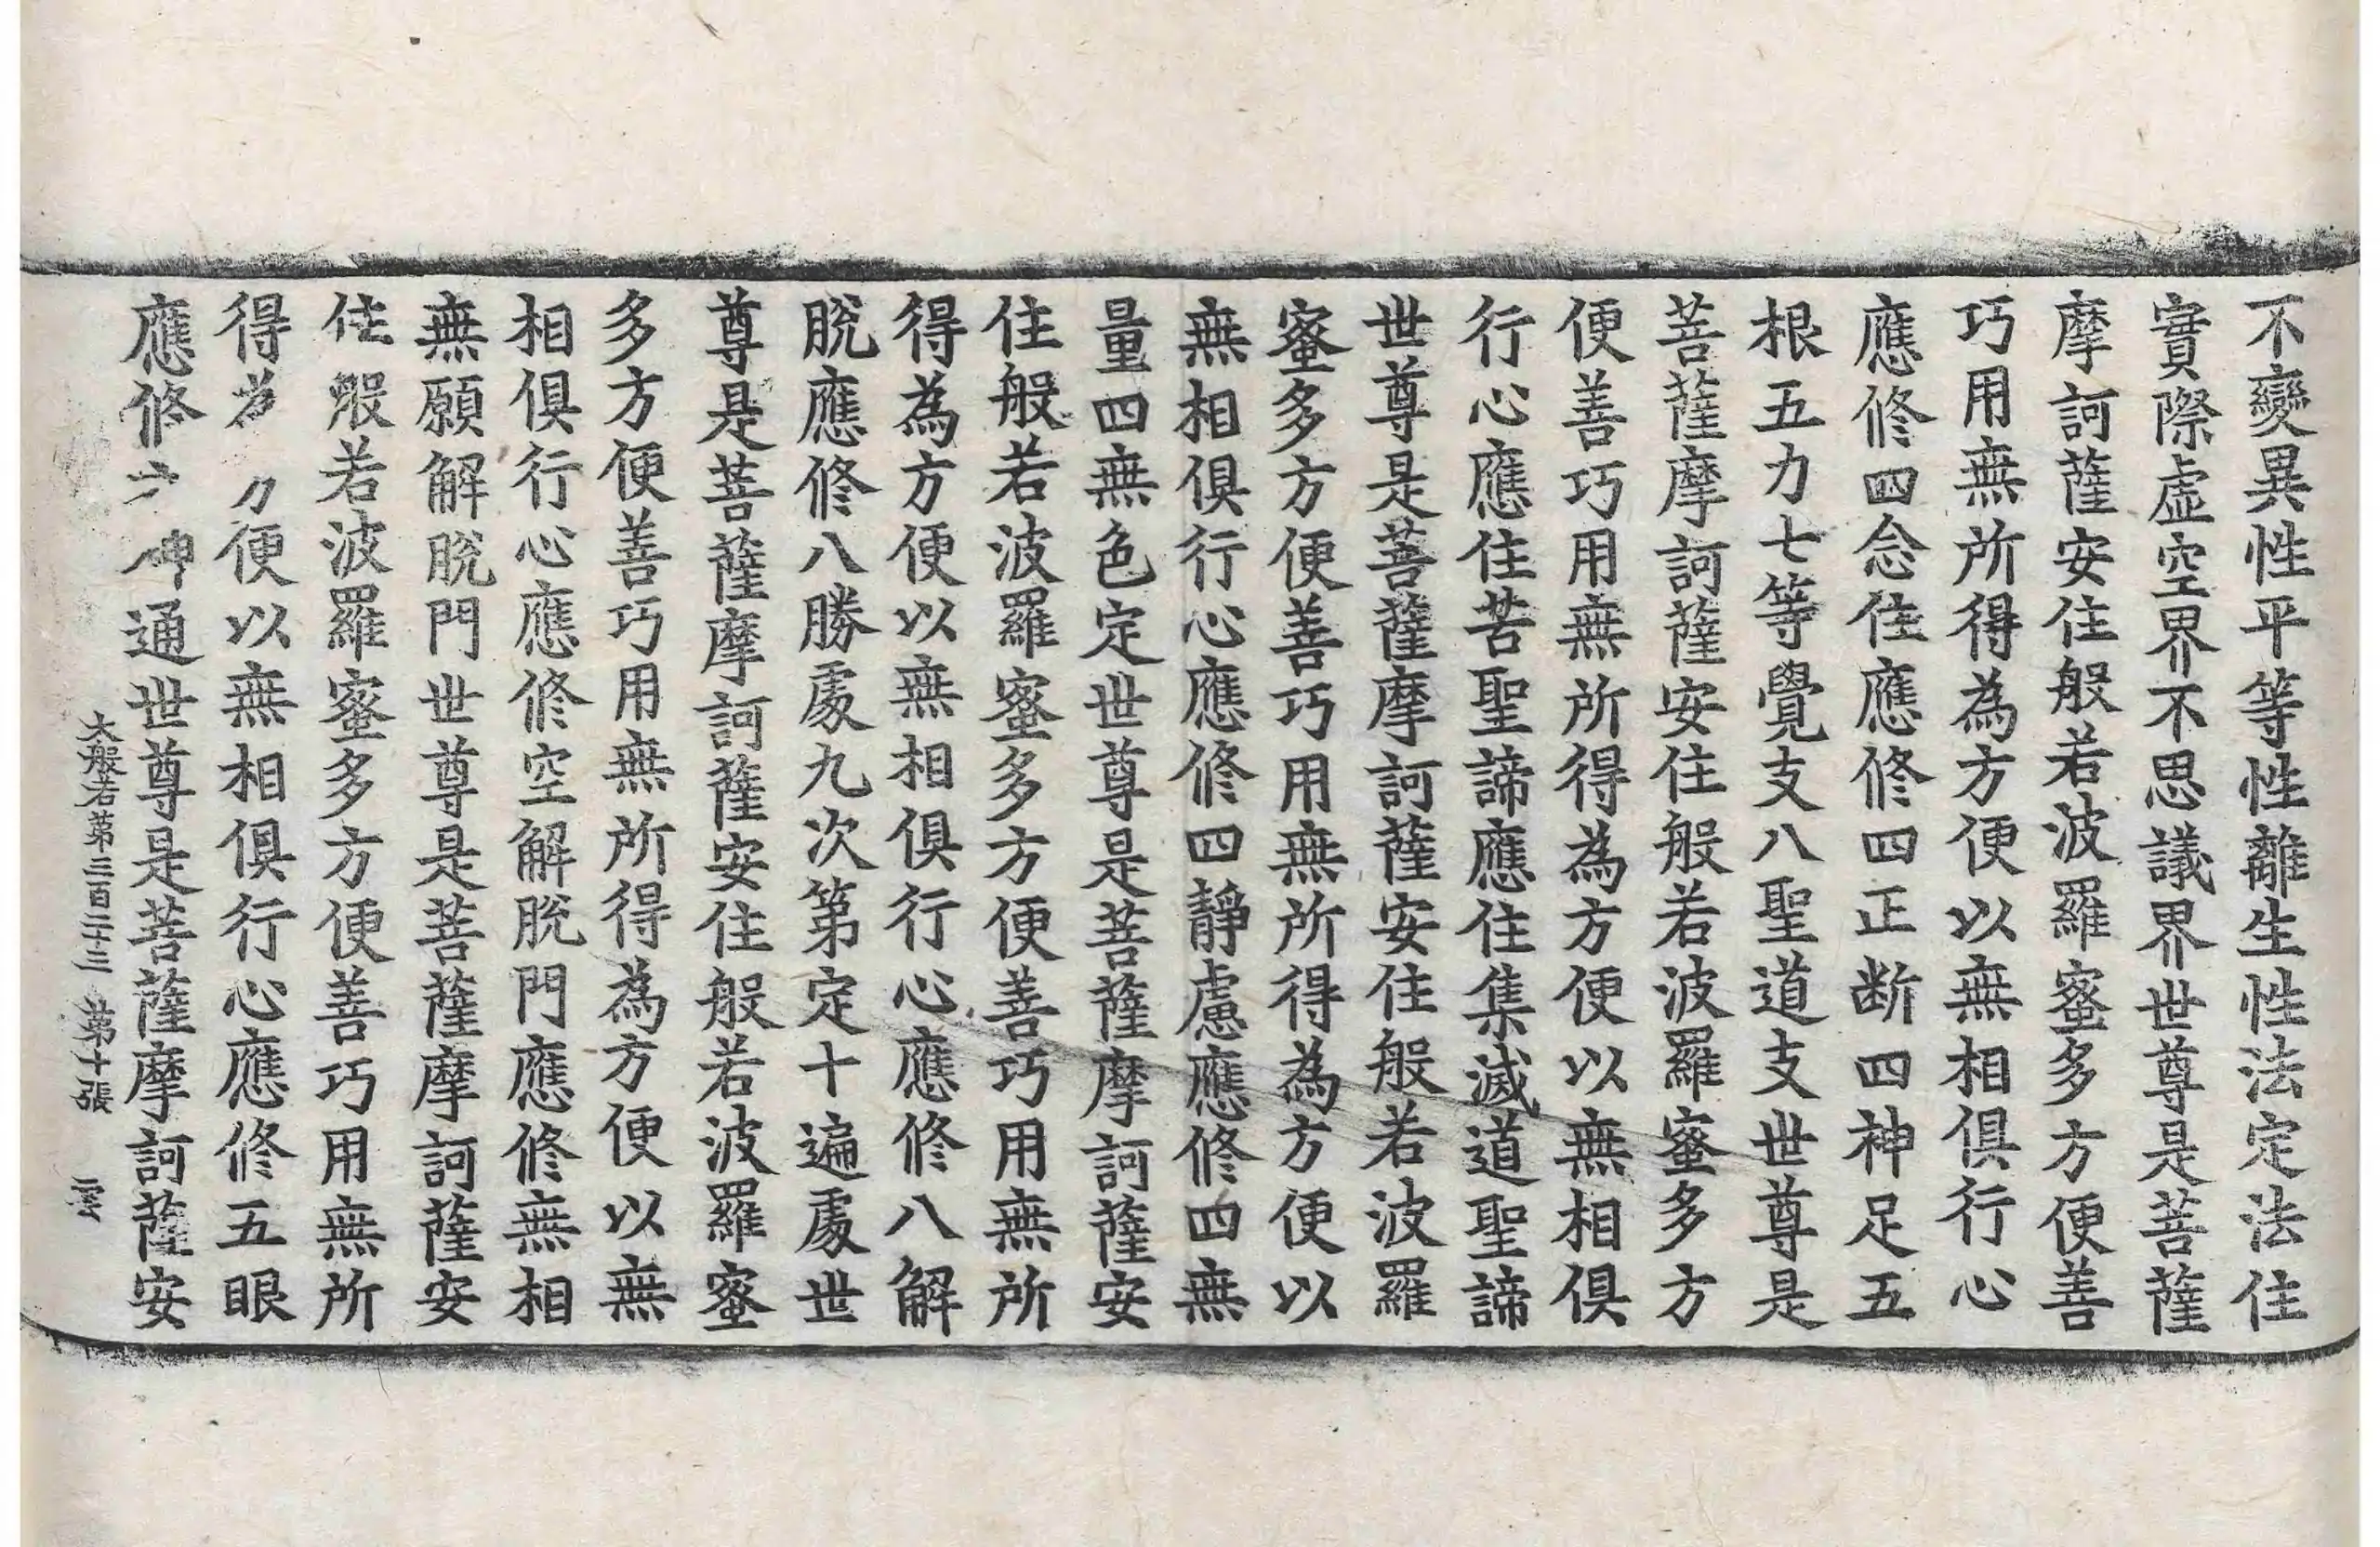 不變異性平等性離生性法定法住
實際虛空界不思議界世尊是菩薩
摩訶薩安住般若波羅蜜多方便善
巧用無所得為方便以無相俱行心
應修四念住應修四正斷四神足五
根五力七等覺支八聖道支世尊是
菩薩摩訶薩安住般若波羅蜜多方
便善巧用無所得為方便以無相俱
行心應住苦聖諦應住集滅道聖諦
世尊是菩薩摩訶薩安住般若波羅
蜜多方便善巧用無所得為方便以
無相俱行心應修四靜慮應修四無
量四無色定世尊是菩薩摩訶薩安
住般若波羅蜜多方便善巧用無所
得為方便以無相俱行心應修八解
脫應修八勝處九次第定十遍處世
尊是菩薩摩訶薩安住般若波羅蜜
多方便善巧用無所得為方便以無
相俱行心應修空解脫門應修無相
無願解脫門世尊是菩薩摩訶薩安
住般若波羅蜜多方便善巧用無所
得為方便以無相俱行心應修五眼
應修六神通世尊是菩薩摩訶薩安
大般若第三百二十三 第十張 雲